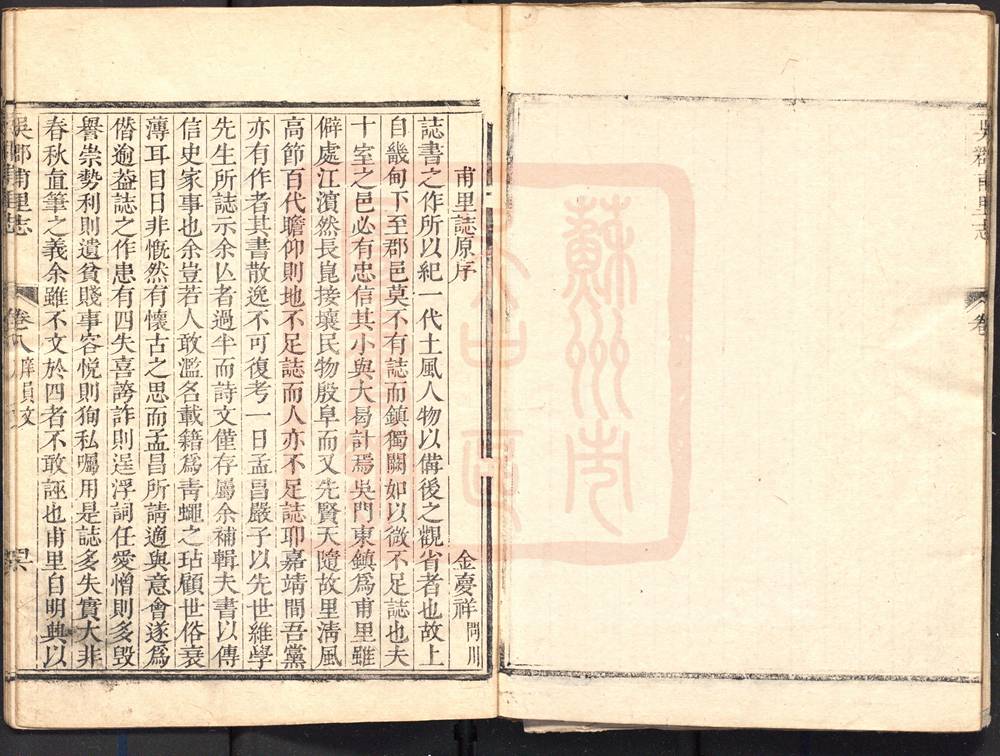 吳郡甫里志
卷
甫里誌原序
金慶祥問川
誌書之作所以紀一代土風人物以備後之觀省者也故上
自畿甸下至郡邑莫不有誌而鎮獨闕如以微不足誌也夫
十室之邑必有忠信其小與大曷計焉吳門東鎮爲甫里雖
僻處江濱然長崑接壤民物殷阜而又先賢天隨故里淸風
高節百代瞻仰則地不足誌而人亦不足誌耶嘉靖間吾黨
亦有作者其書散逸不可復考一日孟昌嚴子以先世維學
先生所誌示余亾者過半而詩文僅存屬余補輯夫書以傳
信史家事也余豈若人敢濫名載籍爲靑蠅之玷顧世俗衰
薄耳目日非慨然有懷古之思而孟昌所請適與意會遂爲
僭逾葢誌之作患有四失喜誇詐則逞浮詞任愛憎則多毁
譽崇勢利則遺貧賤事容悅則狥私囑用是誌多失實大非
春秋直筆之義余雖不文於四者不敢誣也甫里自明興以
吳郡甫里志
卷八
庠員文
蘇州市